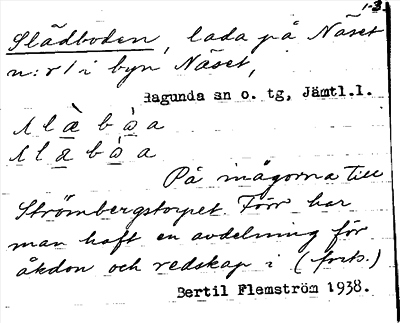 1-3.
Slädboden, lada på Näset
n:r 1 i byn Näset,
Ragunda sn o. tg, Jämtl.l.
På inägorna till
Strömbergstorpet. Förr har
man haft en avdelning för
åkdon och redskap i (forts.)
Bertil Flemström 1938.